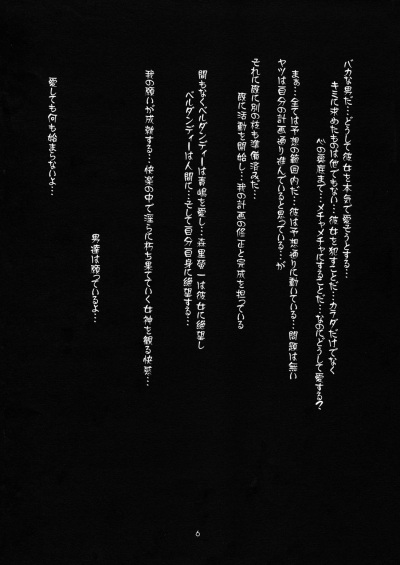 バカな男だ…どうして彼女を本気で愛そうとする…
キミに求めたものは他でもない…彼女を犯すことだ…カラダだけでなく
心の奥底まで…メチャメチャにすることだ…なのにどうして愛する？
まぁ…全ては予想の範囲内だ…彼は予想通りに動いている…問題は無い
ヤツは自分の計画通り進んでいると思っている…が
それに既に別の枝も準備済みだ…
既に活動を開始し…我の計画の修正と完成を担っている
間もなくベルダンディーは青嶋を愛し…森里螢一は彼女に絶望し
ベルダンディーは人間に…そして自分自身に絶望する…
我の願いが成就する…快楽の中で淫らに朽ち果てていく女神を観る快感…
男達は嗤っているよ…
愛しても何も始まらないよ…
6